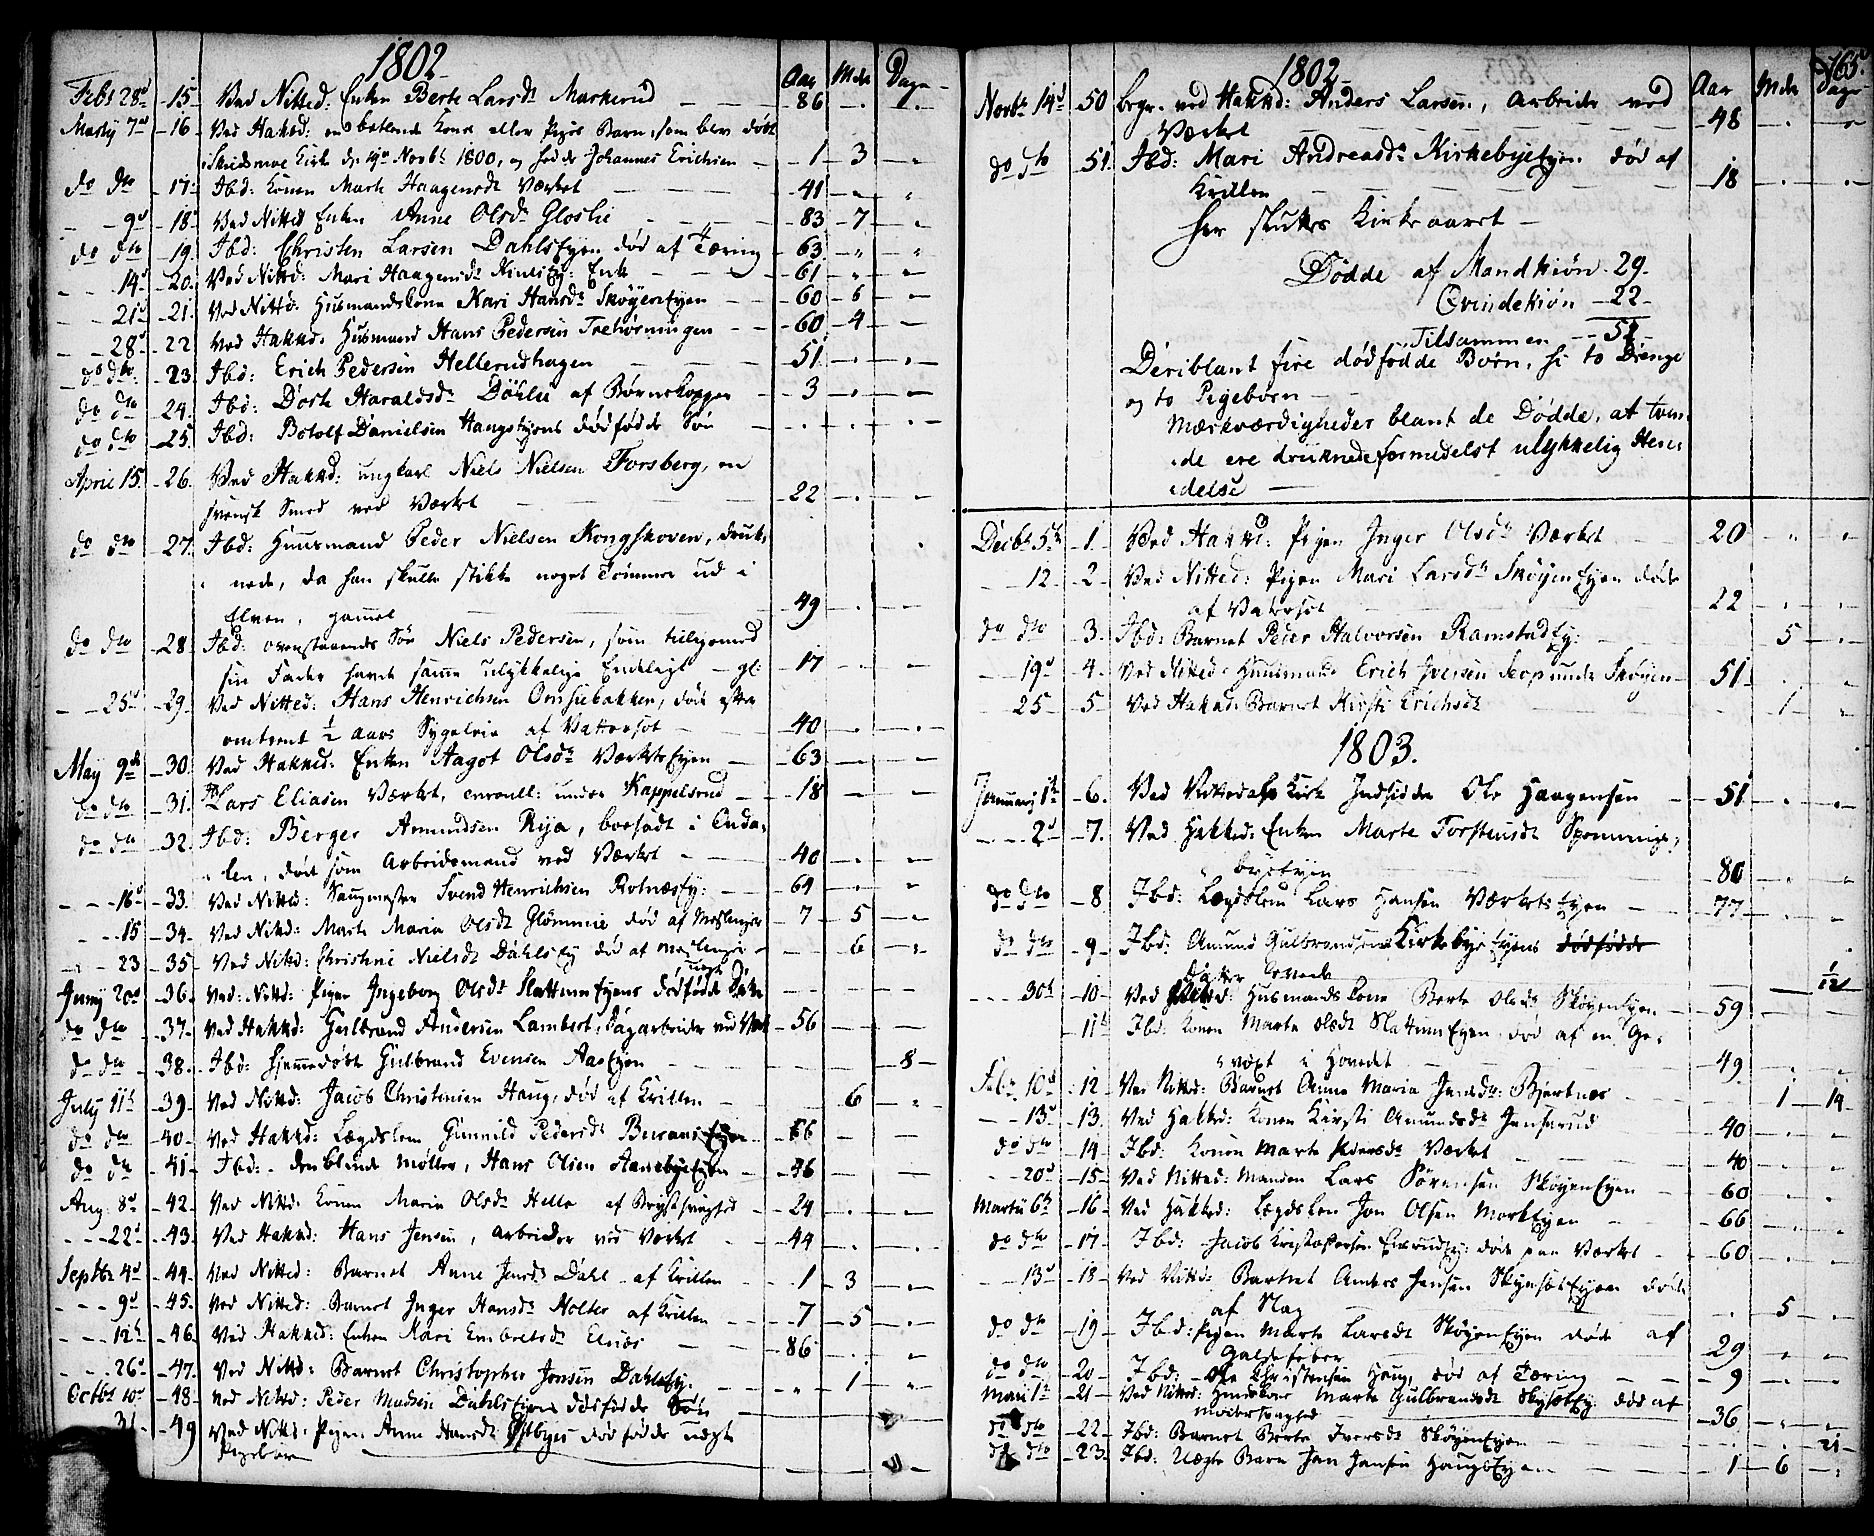 1802
Aar Mdr Dage
Febr 28d 15 Ved Nitted: Enken Berte Larsdr Markerud 86
Martij 7d 16 Ved Hakkd: en betlende Kone eller Piges Barn, som blev døbt
i Skiedsmoe Kirk d: 19d Novbr 1800, og hedde Johannes Erichsen 1 3
do dto 17 Ibd: Konen Marte Haagensdr Værket 41
9d 18 Ved Nitted Enken Anne Olsdr Gloslie 83 7
do dto 19 Ibd: Christen Larsen DahlsEyen død af Tæring 63
14d 20 Ved Nitted: Mari Haagensdr Enke 61
21d 21 Ved Nitted: Huusmandskone Kari Hansdr SkøyenEyen 60 6
28d 22 Ved Hakkd: Husmand Hans Pedersen Trehørningen 60 4
do dto 23 Ibd: Erich Pedersen Hellerudhagen 51
do dto 24 Ibd: Dorte Haraldsdr Döhlie af Børnekopper 3
do dto 25 Ibd: Botolf Danielsen Haugs Eyens dødfødde Søn
April 15 26 Ved Hakkd: ungkarl Niels Nielsen Forsberg, en
svensk Smed ved Værket 22
do dto 27 Ibd: Huusmand Peder Nielsen Kongskoven, druk-
nede, da han skulle stikke noget Tömmer ud i
Elven, gammel 49
do dto 28 Ibd: ovenstaaende Søn Niels Pedersen, som tilligemed
sin Fader havde samme ulykkelige Endeligt gl: 17
25d 29 Ved Nitted: Hans Henrichsen Omsiebakken, døde efter
omtrent 1/2 Aars Sygeleie af Vattersot 40
May 9de 30 Ved Hakked: Enken Aagot Olsdr VærketsEyen 63
do dto 31 Ibd Lars Eliasen Værket, enroull: under Kappelsrud 18
do dto 32 Ibd: Berger Amundsen Rya, boesadt i Enda-
len, død som Arbeidsmand ved Værket 40
16d 33 Ved Nitted: Saugmester Svend Henrichsen RotnæsEy: 69
15 34 Ved Nittd: Marte Maria Olsdr Glömmie død af Meslinger 7 5
23 35 Ved Nittd: Christine Nielsdr DahlsEy død af meslinger 6
Junij 20d 36 Ved: Nittd: Pigen Ingeborg Olsdr SlattumEyens dødfødde uægte
do dto 37 Ved Hakkd: Gulbrand Andersen Lambert, Dagarbeider ved Værket 56
do dto 38 Ibd: hjemmedøbt Gulbrand Evensen AasEyen 8
July 11te 39 Ved Nittd: Jacob Christensen Haug, død af Krillen 6
do dto 40 Ved Hakkd: Lægdslem Gunnild Pedersdr Eyen 66
do dto 41 Ibd: den blinde møller, Hans Olsen AanebyeEyen 46
Aug 8d 42 Ved Nittd: Konen Marie Olsdr Helle af Brystsvaghed 24
22d 43 Ved Hakkd: Hans Jensen, arbeider ved Værket 44
Septbr 4d 44 Ved Nitted: Barnet Anne Jensdr Dahl af Krillen 1 3
9d 45 Ved Nitted: Barnet Inger Hansdr Holter af Krillen 7 5
12te 46 Ved Hakked: Enken Kari Embretsdr Elnæs 86
26d 47 Ved Nittd: Barnet Christopher Jensen DahlsEy: 1
Octbr 10d 48 Ved Nittd: Peder Madsen DahlsEyens dødfødde Søn
31 49 Ved Nittd: Pigen Anne Hansdr Østbyes dødfødde uægte
Pigebarn
1802
165
Aar Mdr Dage
Novbr 14d 50 begr. ved Hakkd: Anders Larsen, arbeider ved
Værket 48
do dto 51 Ibd: Mari Andreasdr KirkebyeEyen død af
Krillen 18
Her sluttes Kirkeaaret
Dødde af Mandkiøn 29
Qvindekiøn 22
Tilsammen 51
Deriblant fire dødfødde Børn, hs to Drenge
og to Pigebörn
Mærkværdigheder blant de Dødde, at tven-
de ere druknede formedelst ulykkelig Hæn-
delse
Decbr 5te 1 Ved Hakkd: Pigen Inger Olsdr Værket 20
12 2 Ved Nitted: Pigen Mari Larsdr SkøyenEyen døde
af Vatersot 22
do dto 3 Ibd: Barnet Peder Halvorsen RamstadEy: 5
19d 4 Ved Nitted: Huusmand Erich Iversen under Skøyen 51
25 5 Ved Hakkd: Barnet Kirsti Erichsdr 1
1803.
Januarij 1te 6 Ved Nittedals Kirk Indsidder Ole Haagensen 51
2d 7 Ved Hakked: Enken Marte Torstensdr
byeEyen 80
do dto 8 Ibd: Lægdslem Lars Hansen VærketsEyen 77
do dto 9 Ibd: Amund Gulbrandsens KirkebyeEyens dødfødde
Datter 1/12
30te 10 Ved Nitted: Husmands Kone Berte Olsdr SkøyenEyen 59
11te Ibd: Konen Marte Olsdr SlattumEyen død af en Ge-
vext i Hovedet 49
Febr 10d 12 Ved Nittd: Barnet Anne Maria Jensdr: Bjertnæs 1 14
13d 13 Ved Hakkd: Konen Kirsti Amundsdr Jenserud 40
do dto 14 Ibd: Konen Marte Pedersdr Værket 40
20d 15 Ved Nitted: Manden Lars Sørensen SkøyenEyen 60
Martii 6te 16 Ved Hakked: Lægdslem Jon Olsen MorkEyen 66
do dto 17 Ibd: Jacob Kristophersen døde paa Værket 60
13d 18 Ved Nitted: Barnet Anders Jensen Eyen døde
af Slag 5
do dto 19 Ibd: Pigen Marte Larsdr SkøyenEyen døde af
Galdefeber 29
do dto 20 Ibd: Ole Christensen Haug, død af Tæring 9
Maii 1te 21 Ved Nitted: Huuskone Marte Gulbrandsdr død af
36
do dto 22 Ibd: Barnet Berte Iversdr SkøyenEyen 21
do dto 23 Ibd: Uægte Barn Jan Jansen HaugsEyen 1 6